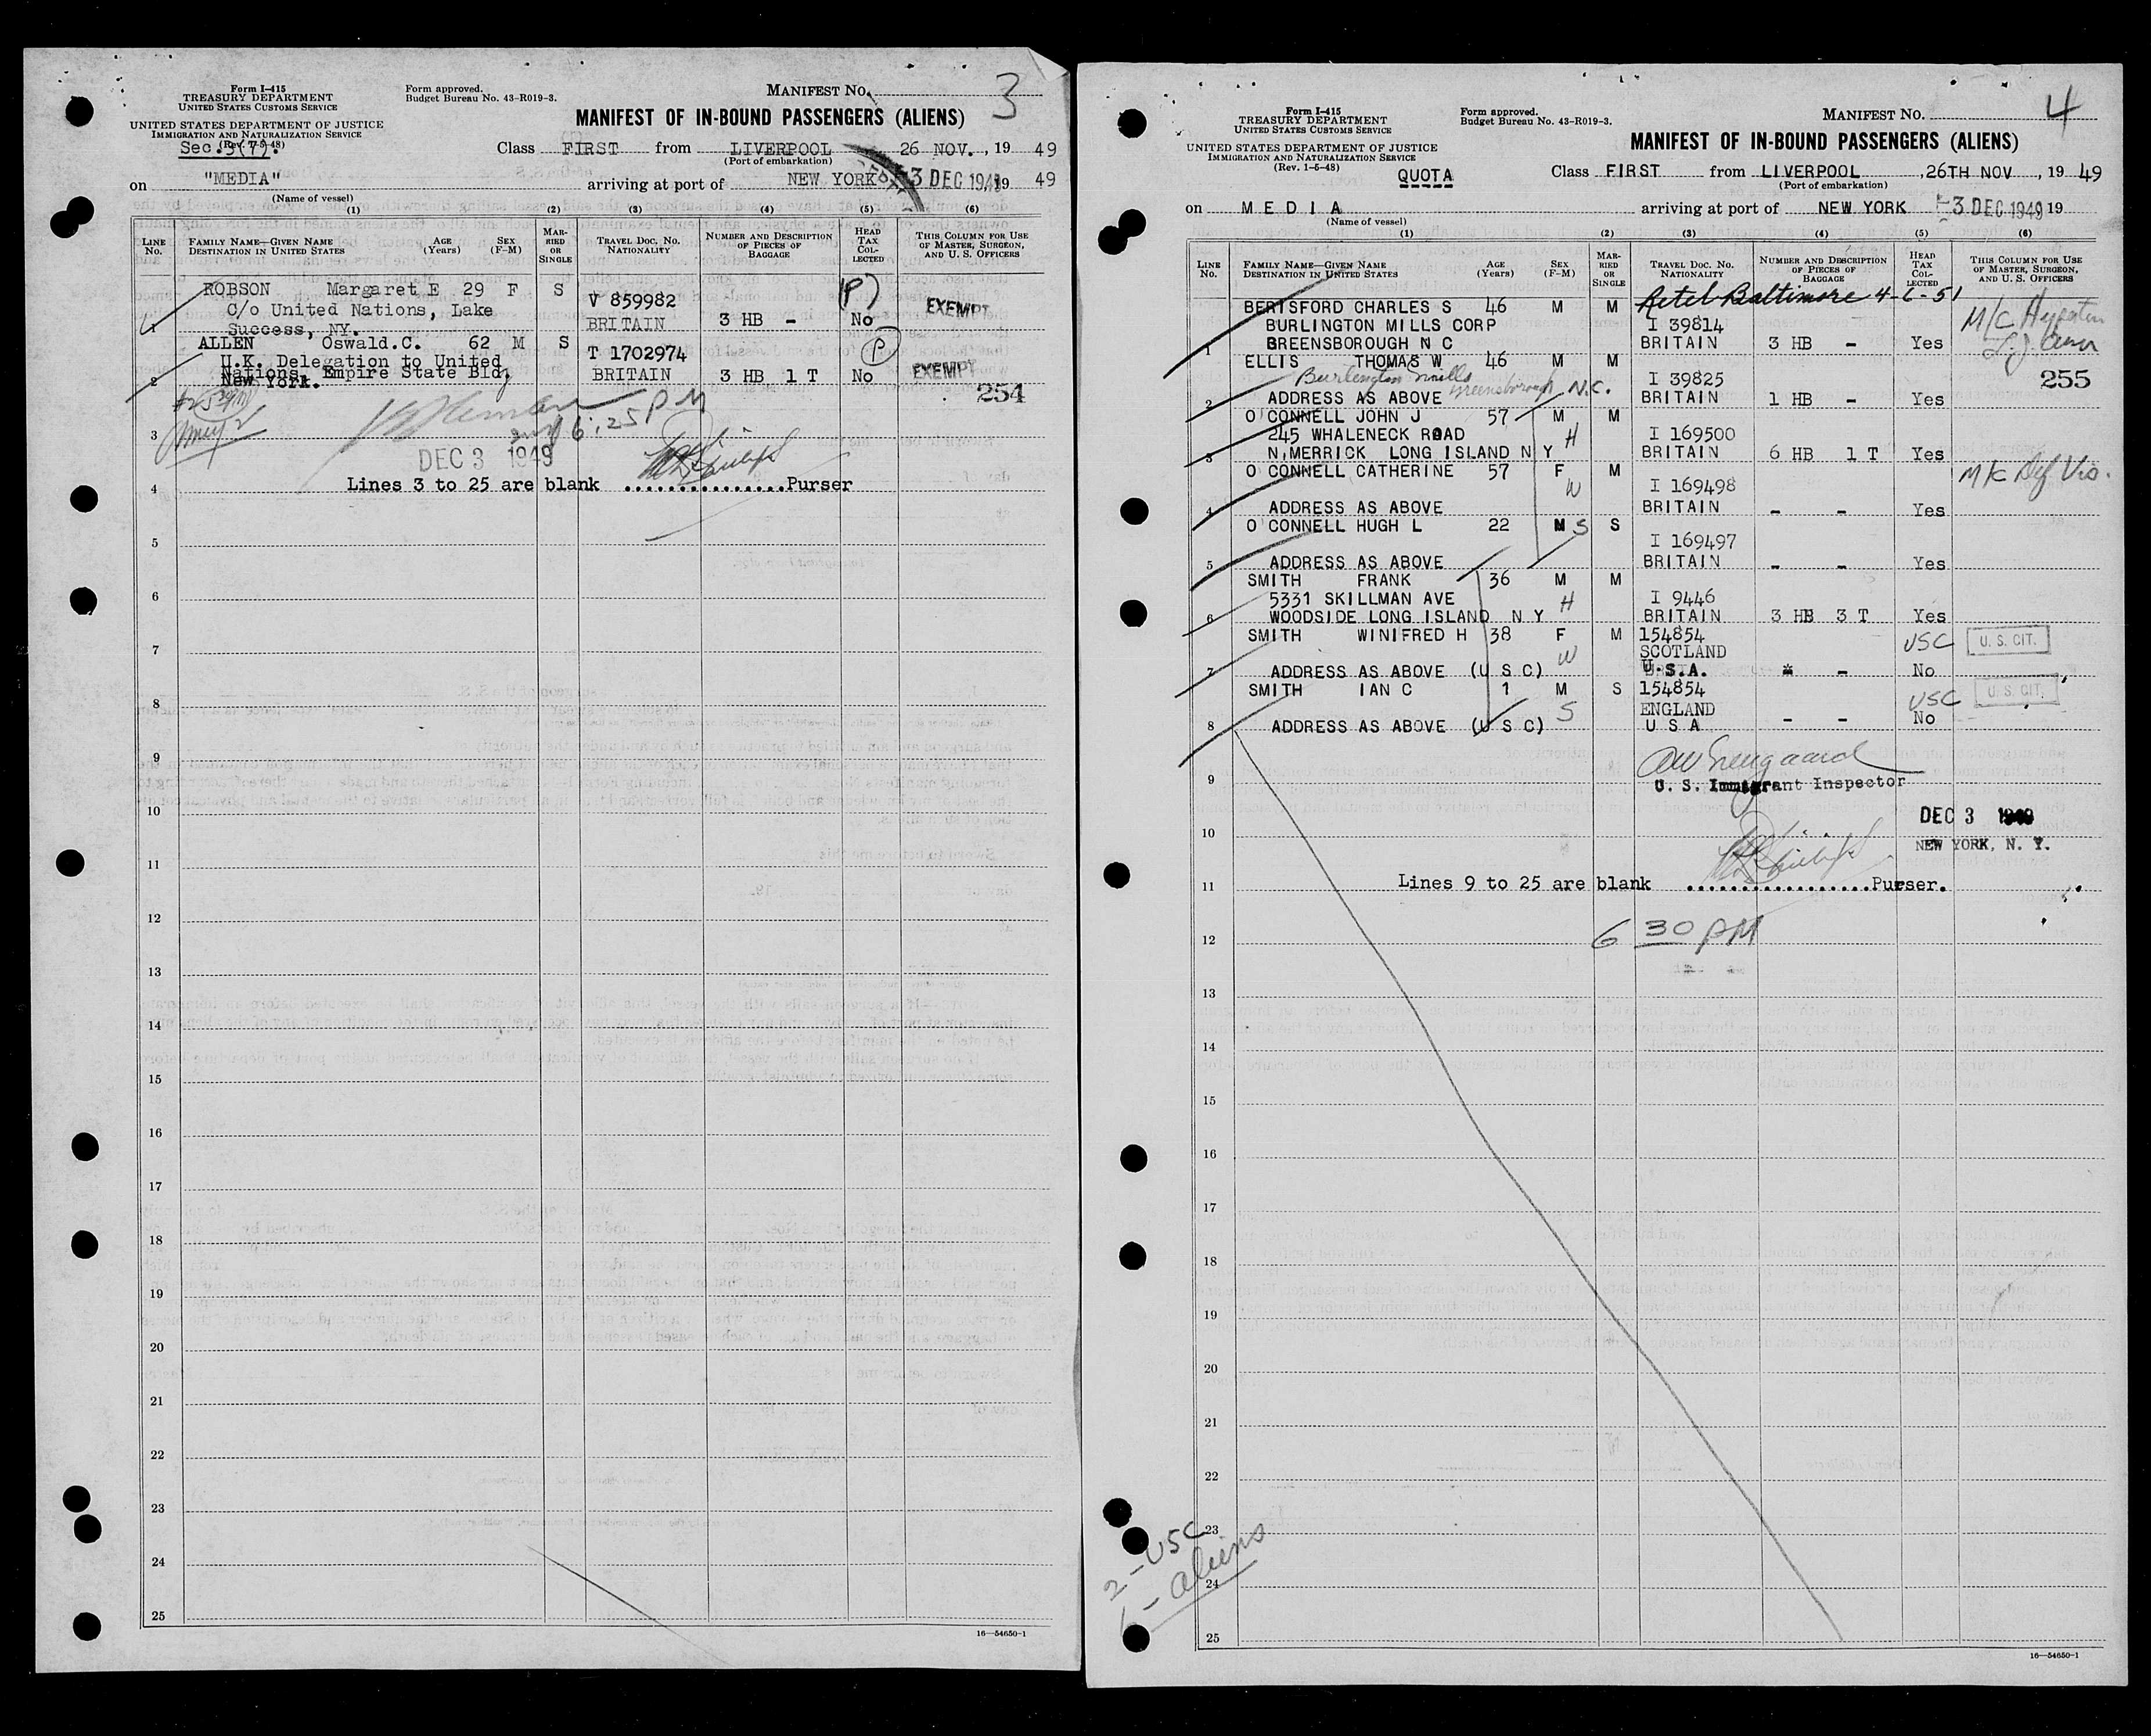 Form I-415
TREASURY DEPARTMENT
UNITED STATES CUSTOMS SERVICE
UNITED STATES DEPARTMENT OF JUSTICE
IMMIGRATION AND NATURALIZATION SERVICE
Sec. 3(7).
Form approved.
Budget Bureau No. 43-R019-3.
MANIFEST NO. 3
MANIFEST OF IN-BOUND PASSENGERS (ALIENS)
Class FIRST from LIVERPOOL 26 NOV., 19 49
(Port of embarkation)
on "MEDIA" arriving at port of NEW YORK 3 DEC 1949, 19 49
(Name of vessel)
(1) (2) (3) (4) (5) (6)
LINE No. FAMILY NAME—GIVEN NAME DESTINATION IN UNITED STATES AGE (Years) SEX (F-M) MARRIED OR SINGLE TRAVEL DOC. NO. NATIONALITY NUMBER AND DESCRIPTION OF PIECES OF BAGGAGE HEAD TAX COLLECTED THIS COLUMN FOR USE OF MASTER, SURGEON, AND U. S. OFFICERS
ROBSON Margaret E 29 F S V 859982 (P) EXEMPT
C/o United Nations, Lake BRITAIN 3 HB - No
1 Success, NY.
ALLEN Oswald.C. 62 M S T 1702974 (P)
U.K. Delegation to United
Nations, Empire State Bld, BRITAIN 3 HB 1 T No EXEMPT
2 New York.
254
6:25 PM
3
DEC 3 1949
4 Lines 3 to 25 are blank ................Purser
5
6
7
8
9
10
11
12
13
14
15
16
17
18
19
20
21
22
23
24
25
16—54650-1
Form I-415
TREASURY DEPARTMENT
UNITED STATES CUSTOMS SERVICE
UNITED STATES DEPARTMENT OF JUSTICE
IMMIGRATION AND NATURALIZATION SERVICE
(Rev. 1-5-48)
QUOTA
Form approved.
Budget Bureau No. 43-R019-3.
MANIFEST NO. 4
MANIFEST OF IN-BOUND PASSENGERS (ALIENS)
Class FIRST from LIVERPOOL, 26TH NOV, 19 49
(Port of embarkation)
on MEDIA arriving at port of NEW YORK 3 DEC 1949 19
(Name of vessel)
(1) (2) (3) (4) (5) (6)
LINE No. FAMILY NAME—GIVEN NAME DESTINATION IN UNITED STATES AGE (Years) SEX (F-M) MARRIED OR SINGLE TRAVEL DOC. NO. NATIONALITY NUMBER AND DESCRIPTION OF PIECES OF BAGGAGE HEAD TAX COLLECTED THIS COLUMN FOR USE OF MASTER, SURGEON, AND U. S. OFFICERS
Baltimore 4-6-51
BERISFORD CHARLES S 46 M M I 39814 M/C
BURLINGTON MILLS CORP
1 BREENSBOROUGH N C BRITAIN 3 HB - Yes
ELLIS THOMAS W 46 M M I 39825 255
Burlington Mills Greensborough N.C.
2 ADDRESS AS ABOVE BRITAIN 1 HB - Yes
O'CONNELL JOHN J 57 M M I 169500
245 WHALENECK ROAD H
3 N,MERRICK LONG ISLAND N Y BRITAIN 6 HB 1 T Yes
O CONNELL CATHERINE 57 F M I 169498 M/C Def Vis.
W
4 ADDRESS AS ABOVE BRITAIN - - Yes
O'CONNELL HUGH L 22 M S S I 169497
5 ADDRESS AS ABOVE BRITAIN - - Yes
SMITH FRANK 36 M M I 9446
5331 SKILLMAN AVE H
6 WOODSIDE LONG ISLAND N Y BRITAIN 3 HB 3 T Yes
SMITH WINIFRED H 38 F M 154854 USC U. S. CIT.
W SCOTLAND
7 ADDRESS AS ABOVE (U S C) U.S.A. - No
SMITH IAN C 1 M S 154854 USC U. S. CIT.
S ENGLAND
8 ADDRESS AS ABOVE (U S C) U S A - - No
9 U. S. Immigrant Inspector
10 DEC 3 1949
NEW YORK, N. Y.
11 Lines 9 to 25 are blank ..................Purser.
12 6 30 PM
13
14
15
16
17
18
19
20
21
22
23
2-USC
24
6-aliens
25
16—54650-1